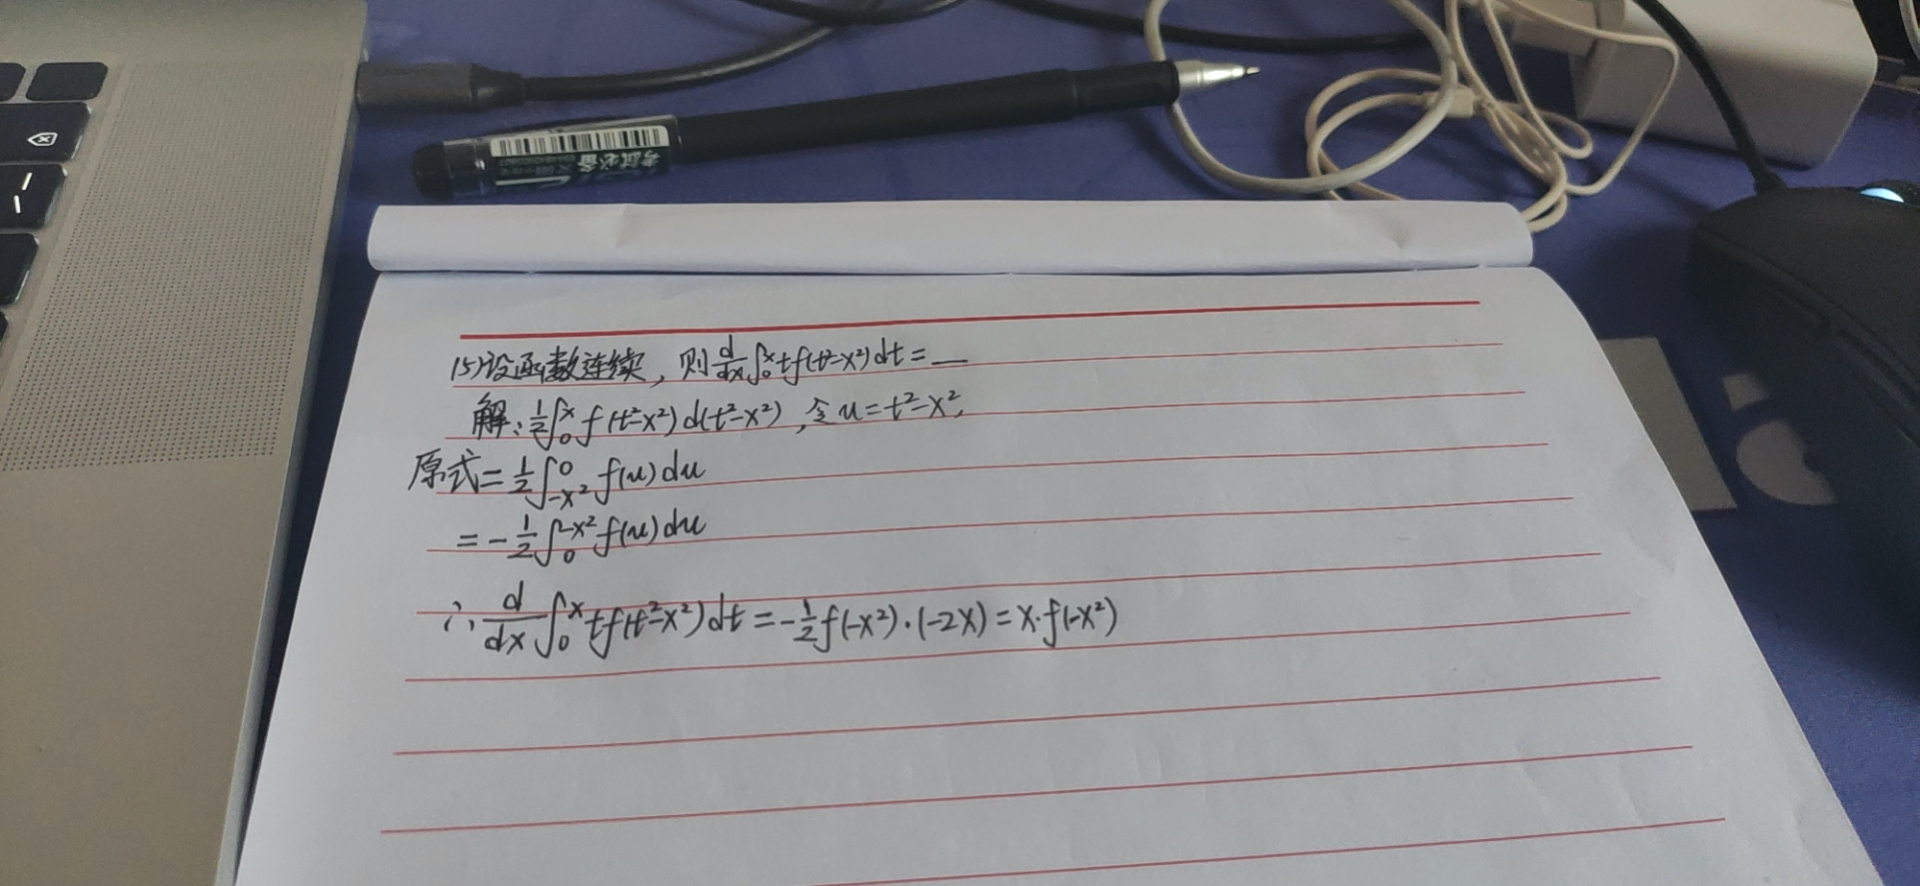 考试必备
15)设函数连续，则 d/dx ∫₀ˣ tf(t²-x²)dt = __
解: 1/2 ∫₀ˣ f(t²-x²) d(t²-x²), 令 u=t²-x²,
原式= 1/2 ∫_{-x²}^0 f(u) du
= - 1/2 ∫_0^{-x²} f(u) du
∴ d/dx ∫₀ˣ tf(t²-x²) dt = - 1/2 f(-x²)·(-2x) = x·f(-x²)